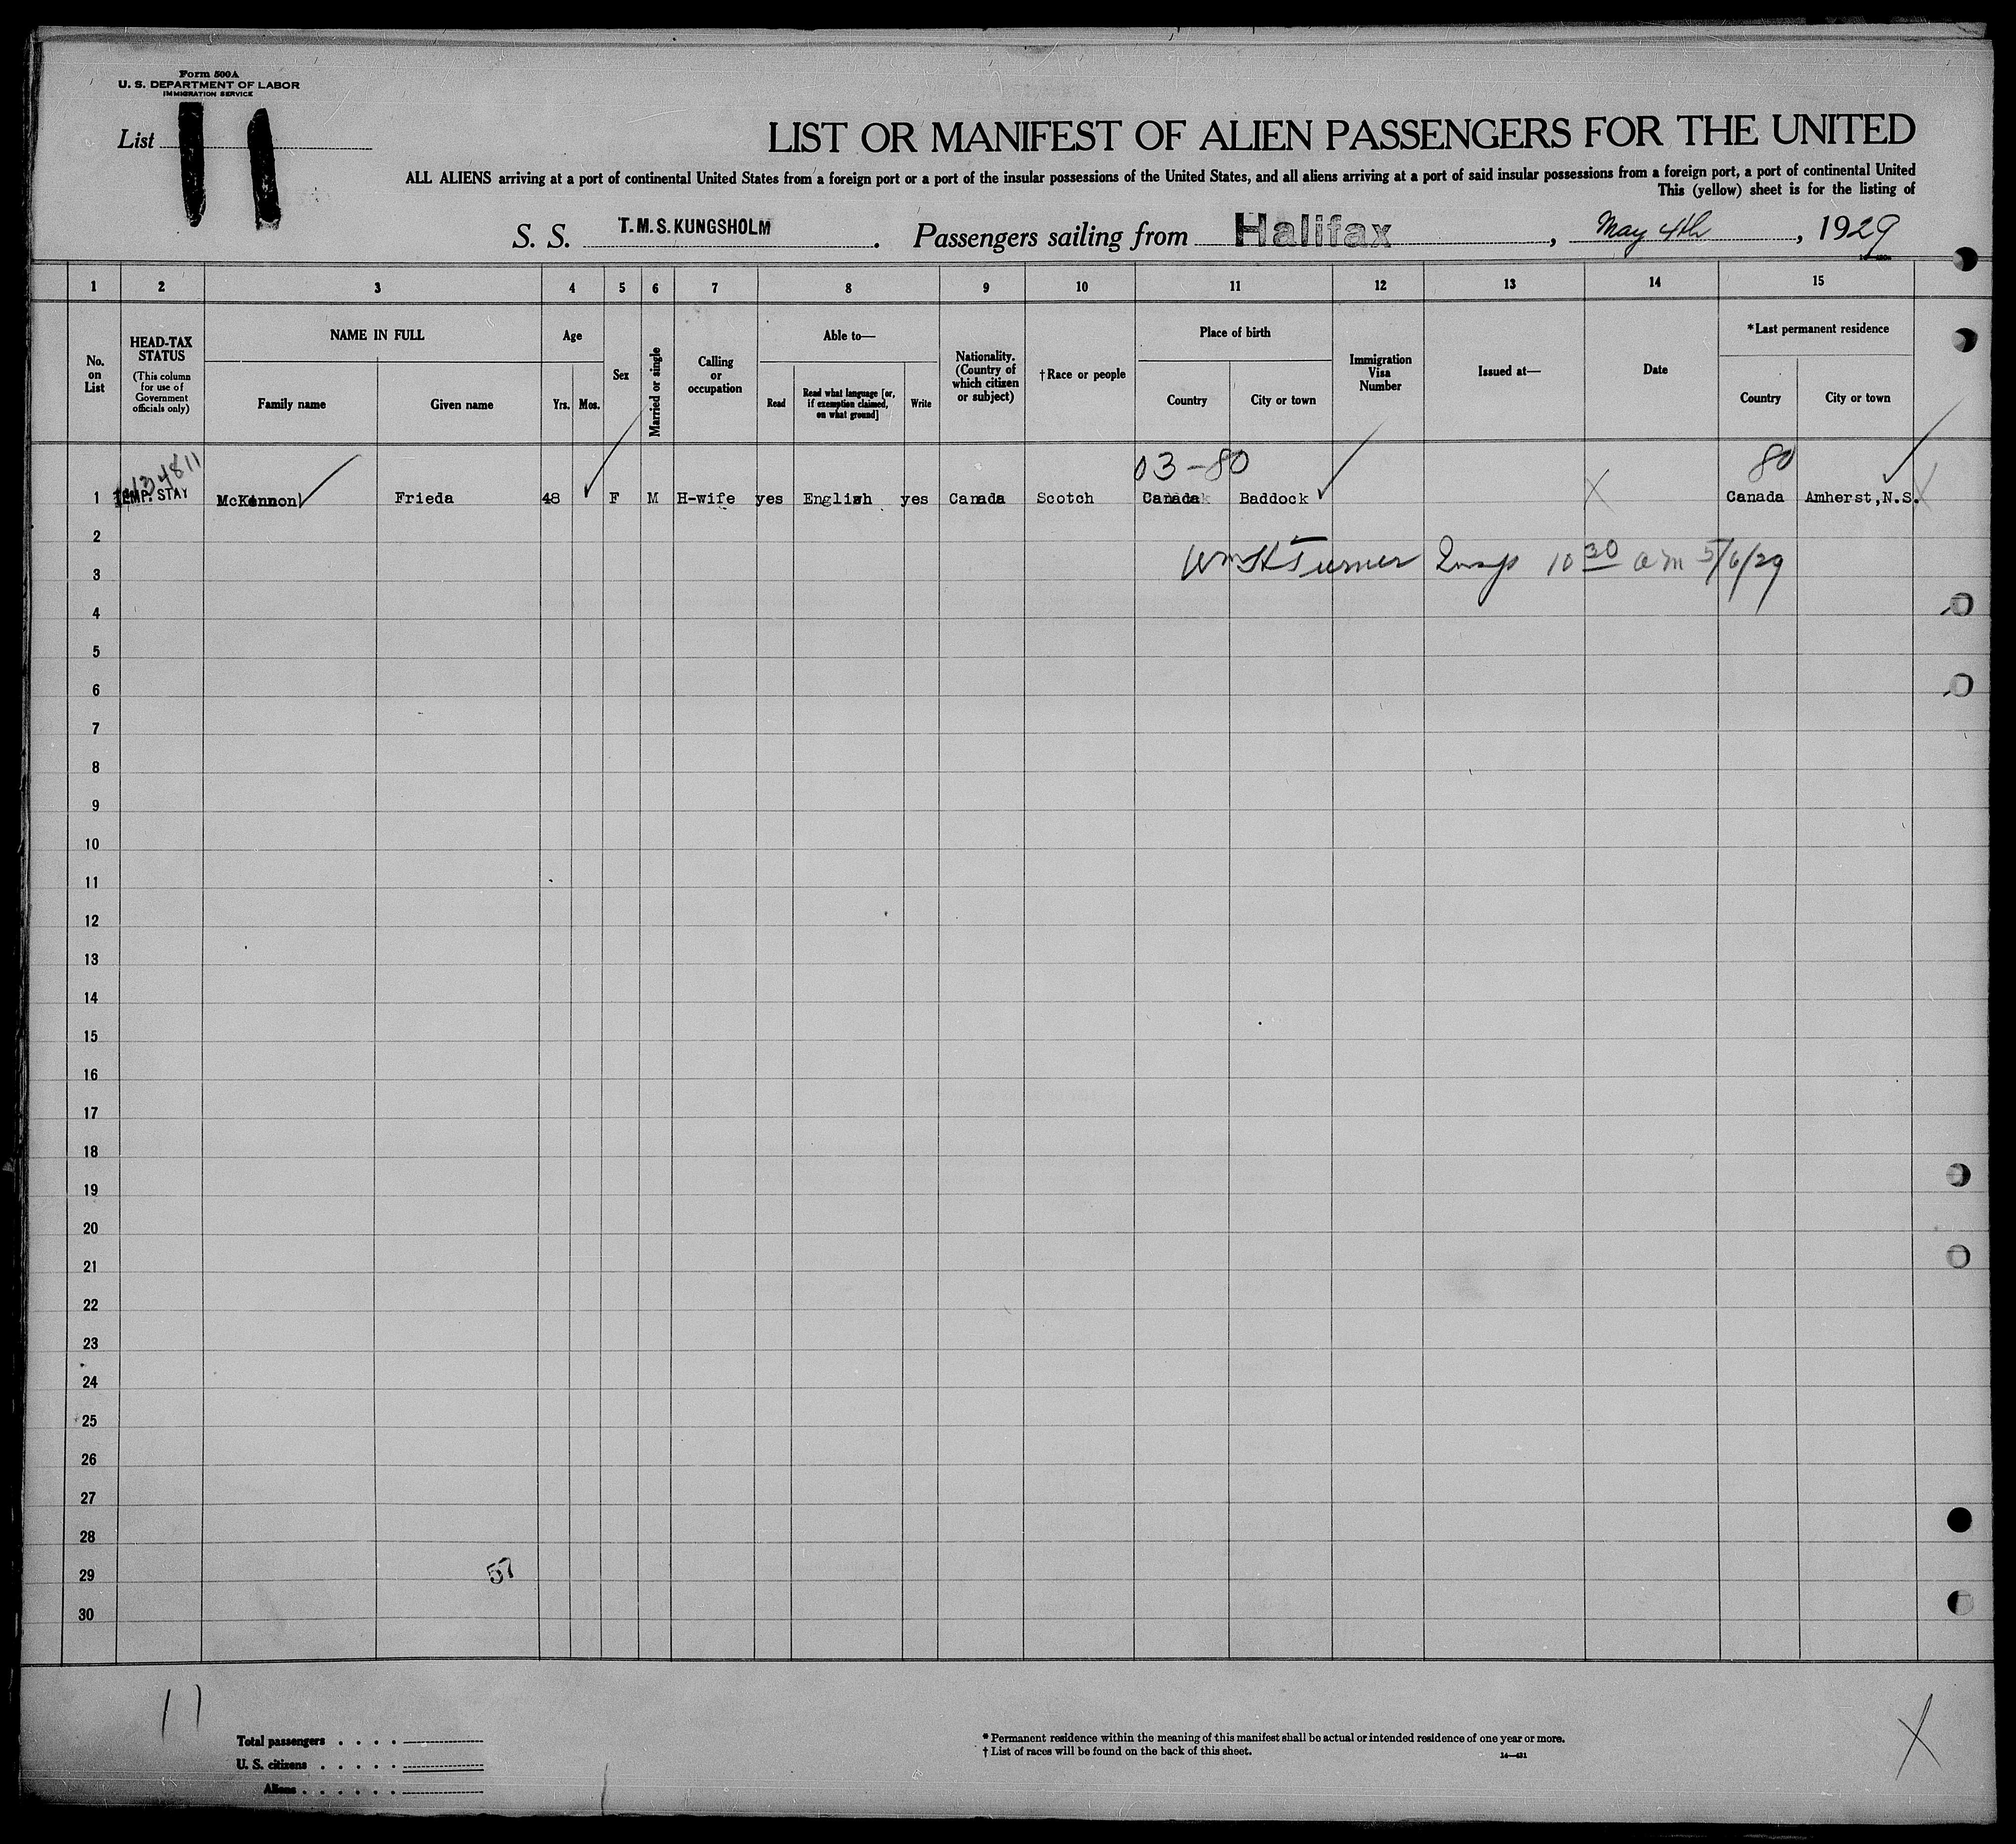 Form 500A
U. S. DEPARTMENT OF LABOR
IMMIGRATION SERVICE
List 11
LIST OR MANIFEST OF ALIEN PASSENGERS FOR THE UNITED
ALL ALIENS arriving at a port of continental United States from a foreign port or a port of the insular possessions of the United States, and all aliens arriving at a port of said insular possessions from a foreign port, a port of continental United
This (yellow) sheet is for the listing of
S. S. T.M.S. KUNGSHOLM . Passengers sailing from Halifax , May 4th , 1929
1 2 3 4 5 6 7 8 9 10 11 12 13 14 15
No. on List
HEAD-TAX STATUS
(This column for use of Government officials only)
NAME IN FULL
Family name Given name
Age
Yrs. Mos.
Sex
Married or single
Calling or occupation
Able to—
Read Read what language [or, if exemption claimed, on what ground] Write
Nationality. (Country of which citizen or subject)
†Race or people
Place of birth
Country City or town
Immigration Visa Number
Issued at—
Date
*Last permanent residence
Country City or town
03-80 80
1 TEMP. STAY McKennon Frieda 48 F M H-wife yes English yes Canada Scotch Canada Baddock Canada Amherst,N.S.
2
Wm H Turner Insp 10 30 am 5/6/29
3
4
5
6
7
8
9
10
11
12
13
14
15
16
17
18
19
20
21
22
23
24
25
26
27
28
29 57
30
11
Total passengers . . . .
U. S. citizens . . . . .
Aliens . . . . . .
* Permanent residence within the meaning of this manifest shall be actual or intended residence of one year or more.
† List of races will be found on the back of this sheet.
14—431